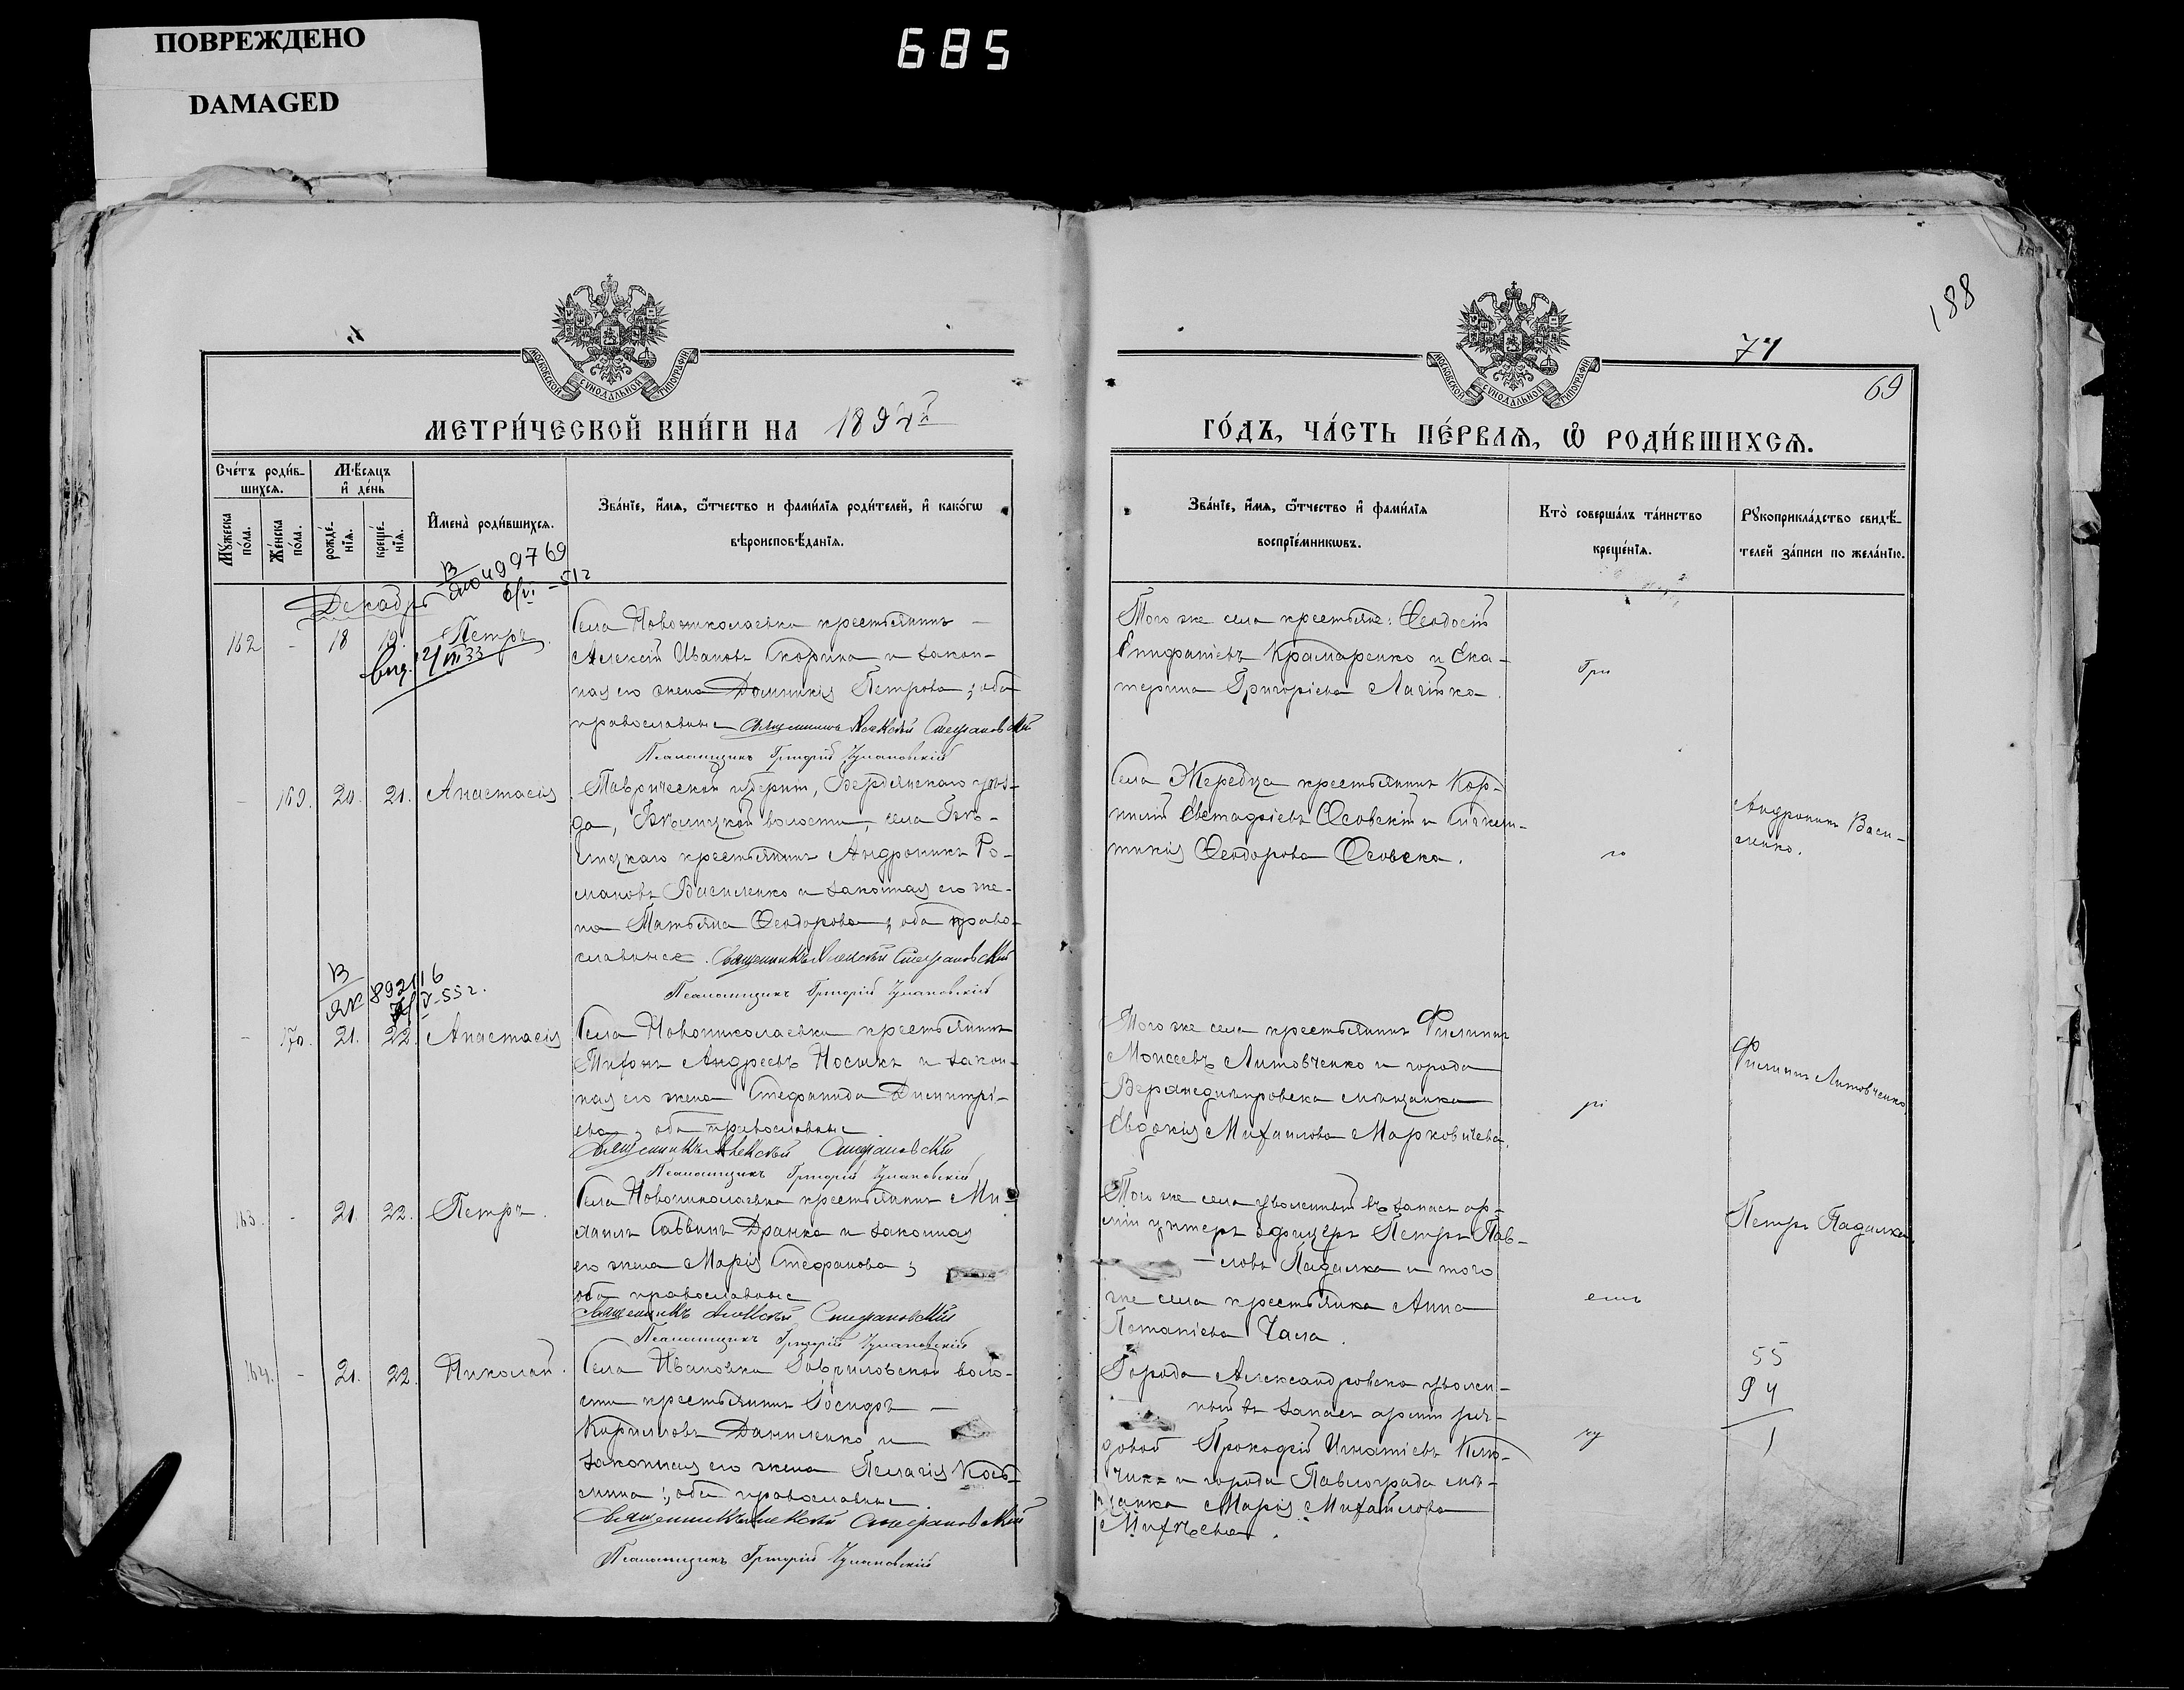 ПОВРЕЖДЕНО
DAMAGED
685
188
74
69
МОСКОВСКОЙ СУНОДАЛЬНОЙ ТИПОГРАФІИ
МОСКОВСКОЙ СУНОДАЛЬНОЙ ТИПОГРАФІИ
МЕТРИ́ЧЕСКОЙ КНИ́ГИ НА 1892
ГО́ДЪ, ЧА́СТЬ ПЕ́РВАѦ, Ѡ РОДИ́ВШИХСѦ.
Сче́тъ роди́в-
шихсѧ.
Мѣ́сѧцъ
и҆ де́нь
Мꙋ́жеска по́ла.
Же́нска по́ла.
рожде́-
нїѧ.
креще́-
нїѧ.
И҆мена̀ роди́вшихсѧ.
Зва́нїе, и҆́мѧ, ѻ҆́тчество и фами́лїѧ роди́телей, и҆ како́гѡ
вѣроисповѣ́данїѧ.
Зва́нїе, и҆́мѧ, ѻ҆́тчество и҆ фами́лїѧ
воспрїе́мникѡвъ.
Кто̀ соверша́лъ та́инство
креще́нїѧ.
Рꙋкоприкла́дство свидѣ́-
телей за́писи по жела́нїю.
Декабрь
162 - 18 19. Петръ.
Села Новониколаевки крестьянинъ
Алексій Ивановъ Скорина и закон-
ная его жена Домникія Петрова; оба
православные Священникъ Алексій Стефановскій
Псаломщикъ Григорій
Того же села крестьяне: Ѳеодосій
Епифаніевъ Крамаренко и Ека-
терина Григоріева
Гри
- 169. 20. 21. Анастасія
Таврической губерніи, Бердянскаго уѣз-
да, волости, села
крестьянинъ Андроникъ Ро-
мановъ Василенко и законная его же-
на Татьяна Ѳеодорова; оба право-
славные. Священникъ Алексій Стефановскій
Псаломщикъ Григорій
Села Жеребца крестьянинъ Кор-
нилій Евстафіевъ Осовскій и
Ѳеодорова Осовска.
го
Андроникъ Васи-
ленко.
- 170. 21. 22. Анастасія
Села Новониколаевки крестьянинъ
Тихонъ Андреевъ Носикъ и закон-
ная его жена Стефанида Димитрі-
ева, оба православные
Священникъ Алексій Стефановскій
Псаломщикъ Григорій
Того же села крестьянинъ Филиппъ
Моисеевъ Литовченко и города
Верхнеднѣпровска мѣщанка
Евдокія Михаилова Марковичева.
рі
Филиппъ Литовченко
163. - 21. 22. Петръ.
Села Новониколаевки крестьянинъ Ми-
хаилъ Саввинъ Дранка и законная
его жена Марія Стефанова;
оба православные
Священникъ Алексій Стефановскій
Псаломщикъ Григорій
Того же села уволенный въ запасъ ар-
міи унтеръ офицеръ Петръ Пав-
ловъ Падалка и того
же села крестьянка Анна
Потапіева Чала.
емъ
Петръ Падалка.
164. - 21. 22. Николай.
Села Ивановки Гавриловской воло-
сти крестьянинъ
Кирилловъ Даниленко и
законная его жена Пелагія Кось-
мина; оба православные.
Священникъ Алексій Стефановскій
Псаломщикъ Григорій
Города Александровска уволен-
ный въ запасъ арміи ря-
довой Прокофій Игнатіевъ
и города Павлограда мѣ-
щанка Марія Михайлова
Михѣева.
55
94
1